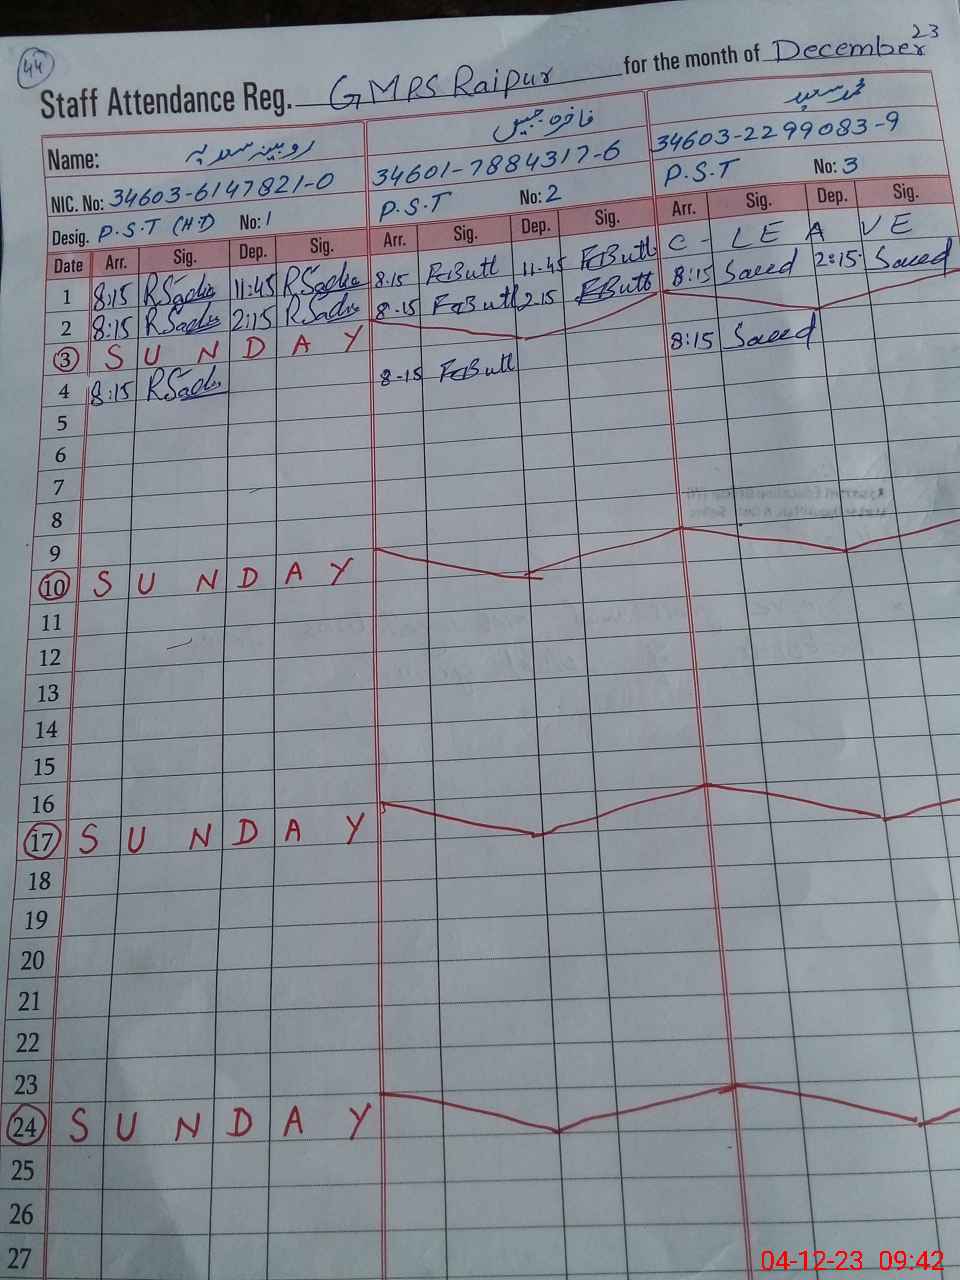 44
Staff Attendance Reg. GMPS Raipur for the month of December 23
Name: روبینہ سعدیہ فاخرہ جبیں محمد سعید
NIC. No: 34603-6147821-0 34601-7884317-6 34603-2299083-9
Desig. P.S.T (H.T) No: 1 P.S.T No: 2 P.S.T No: 3
Date Arr. Sig. Dep. Sig. Arr. Sig. Dep. Sig. Arr. Sig. Dep. Sig.
1 8:15 RSadia 11:45 RSadia 8.15 FButt 11.45 FButt C- LEAVE
2 8:15 RSadia 2:15 RSadia 8-15 FButt 2.15 FButt 8:15 Saeed 2:15 Saeed
3 SUNDAY
4 8:15 RSadia 8-15 FButt 8:15 Saeed
5
6
7
8
9
10 SUNDAY
11
12
13
14
15
16
17 SUNDAY
18
19
20
21
22
23
24 SUNDAY
25
26
27
04-12-23 09:42